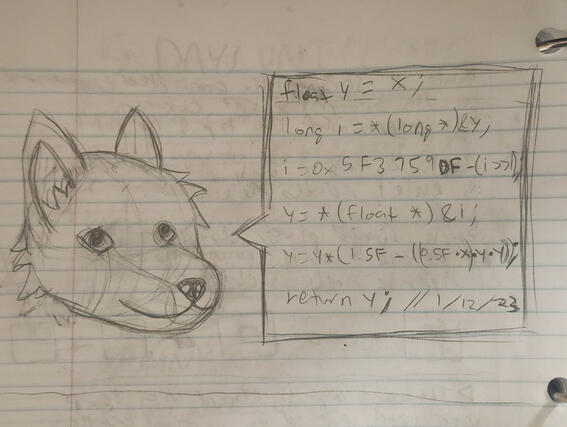 float y = x;
long i = *(long *)&y;
i = 0x 5F3759DF - (i>>1);
y = *(float *) &i;
y = y*(1.5F - ((0.5F·x)·y·y));
return y; // 1/12/23